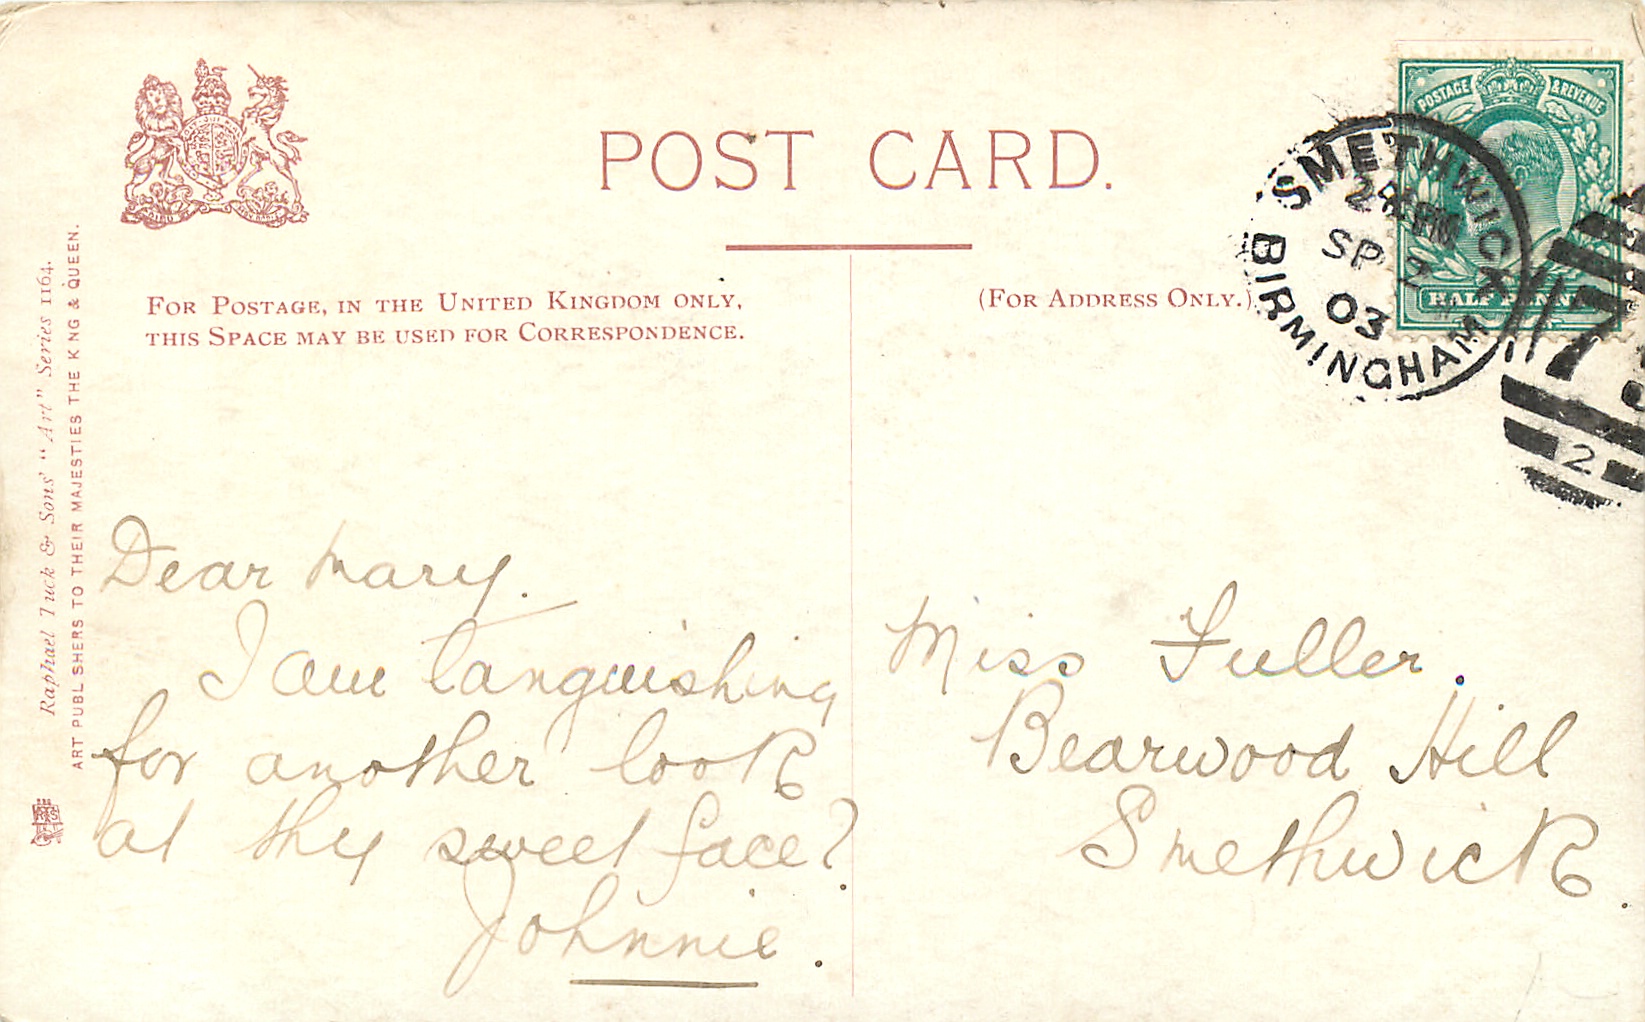 POST CARD.
FOR POSTAGE, IN THE UNITED KINGDOM ONLY,
THIS SPACE MAY BE USED FOR CORRESPONDENCE.
(FOR ADDRESS ONLY.)
Raphael Tuck & Sons' "Art" Series 1164.
ART PUBLISHERS TO THEIR MAJESTIES THE KING & QUEEN.
POSTAGE & REVENUE
HALF PENNY
SMETHWICK
SP
03
BIRMINGHAM
2
Dear Mary.
I am languishing
for another look
at thy sweet face?
Johnnie.
Miss Fuller.
Bearwood Hill
Smethwick.